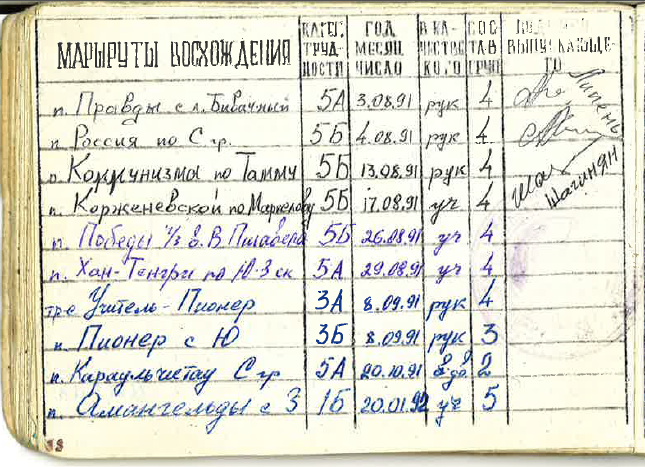 МАРШРУТЫ ВОСХОЖДЕНИЯ КАТЕГ. ТРУД-НОСТИ ГОД МЕСЯЦ ЧИСЛО В КА-ЧЕСТВЕ КОГО СОС ТАВ ГРУП ВЫПУСКАЮЩЕ-ГО
п. Правды с л. Бивачный 5А 3.08.91 рук 4
п. Россия по С гр. 5Б 4.08.91 рук 4 Лапень
п. Коммунизма по Тамму 5Б 13.08.91 рук 4
п. Корженевской по Маркелову 5Б 17.08.91 уч 4 Шагинян
п. Победы ч/з в. В. Пшавела 5Б 26.08.91 уч 4
п. Хан-Тенгри по Ю-З ск 5А 29.08.91 уч 4
тр-с Учитель-Пионер 3А 8.09.91 рук 4
п. Пионер с Ю 3Б 8.09.91 рук 3
п. Караульчитау С гр 5А 20.10.91 2
п. Амангельды с З 1Б 20.01.92 уч 5